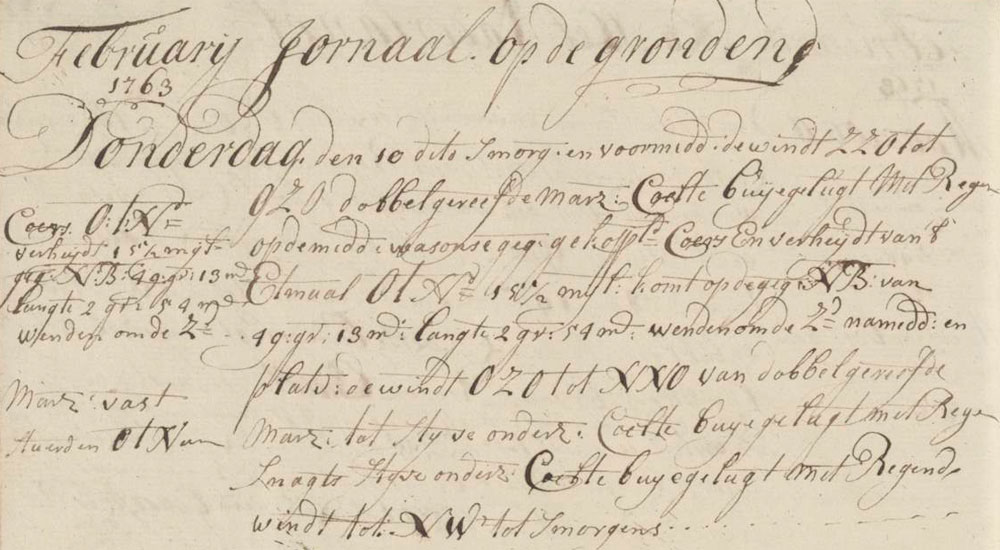 Februarij Jornaal. op de gronden
1763
Donderdag den 10 dito Smorg: en voormidd: de windt ZZO tot
OZO dobbelgereefde Marz: Coelte buijegelugt Met Regen
op de midd: was onse geg: gekopplde Coers En verheijdt van 8t
Etmaal Ot Nd 15 1/2 mijl: komt op de geg: NB: van
49: gr: 13 md: langte 2 gr: 54 md: wenden om de Zd namedd: en
platv: de windt OZO tot NNO van dobbelgereefde
Marz: tot Styve onderz: Coelte buijegelugt met Regen
Snagts Styve onderz: Coelte buijegelugt met Regen d
windt tot: NW tot Smorgens
Coers. O: t: Nd
verheijdt 15 1/2 mijl
geg: NB: 49: gr: 13 md
langte 2 gr: 54 md
wenden om de Zd
Marz: vast
Stuerden Ot N